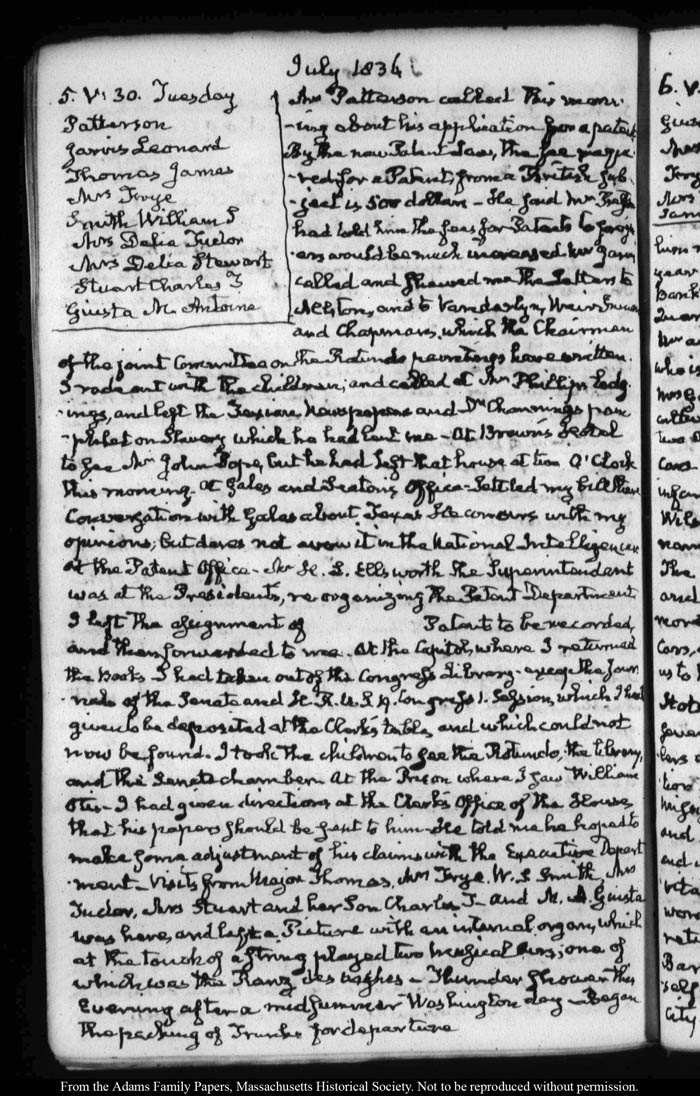 July 1836.
5. V: 30. Tuesday
Patterson
Jarvis Leonard
Thomas James
Mrs Frye
Smith William S
Mrs Delia Tudor
Mrs Delia Stewart
Stuart Charles T
Giusta M. Antoine
Mr Patterson called this morn-
-ing about his application for a patent
By the new Patent Law, the fee requi-
-red for a Patent, from a British sub-
-ject is 500 dollars - He said Mr
had told him the fees for Patents to foreign-
-ers would be much increased. Mr Jarvis
called and shewed me the Letters to
Alston, and to Vanderlyn, Weir
and Chapman, which the Chairman
of the joint Committee on the Rotundo paintings have written.
I rode out with the children; and called at Mr Phillips lodg-
-ings, and left the Texian Newspapers and Dr Channing's pam-
-phlet on Slavery which he had lent me - At Brown's Hotel
to see Mr John Pope, but he had left that house at ten O'Clock
this morning. At Gales and Seaton's Office - Settled my bill there
Conversation with Gales about Texas He concurs with my
opinions; but dares not avow it in the National Intelligencer
At the Patent Office - Mr H. L. Ellsworth the Superintendent
was at the Presidents, re-organizing the Patent Department
I left the assignment of Patent to be recorded,
and then forwarded to me. At the Capitol, where I returned
the Books I had taken out of the Congress Library - except the Jour-
-nals of the Senate and H. R. U.S. Congress 1. Session, which I had
given to be deposited at the Clerk's table, and which could not
now be found. I took the children to see the Rotundo, the library,
and the Senate chamber. At the Prison where I saw William
Otis - I had given directions at the Clerk's Office of the House,
that his papers should be sent to him - He told me he hoped to
make some adjustment of his claims with the Executive Depart-
-ment. Visits from Major Thomas, Mrs Frye, W. S Smith, Mrs
Tudor, Mrs Stuart and her Son Charles T - and M. A. Giusta
was here, and left a Picture with an internal organ, which
at the touch of a string played two musical airs; one of
which was the Ranz des vaches - Thunder Shower this
Evening after a midsummer Washington day - Began
the packing of Trunks for departure
6. V.
From the Adams Family Papers, Massachusetts Historical Society. Not to be reproduced without permission.